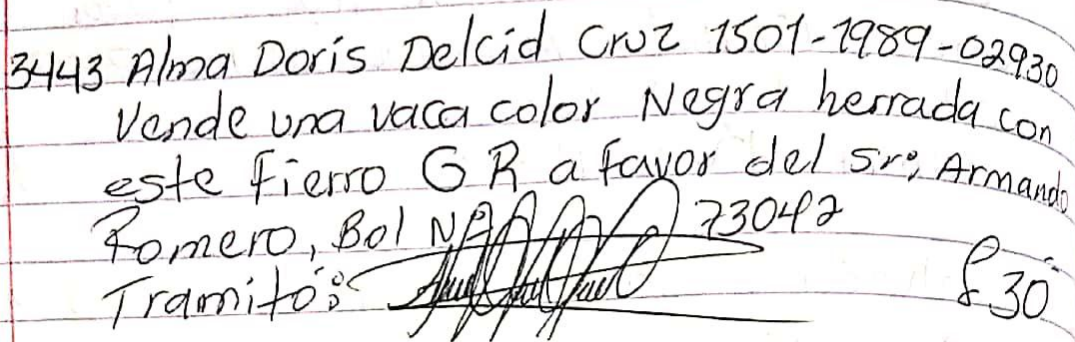 3443 Alma Doris Delcid Cruz 1501-1989-02930
Vende una vaca color Negra herrada con
este Fierro G R a favor del Sr; Armando
Romero, Bol Nº 73042
Tramitó:
L 30